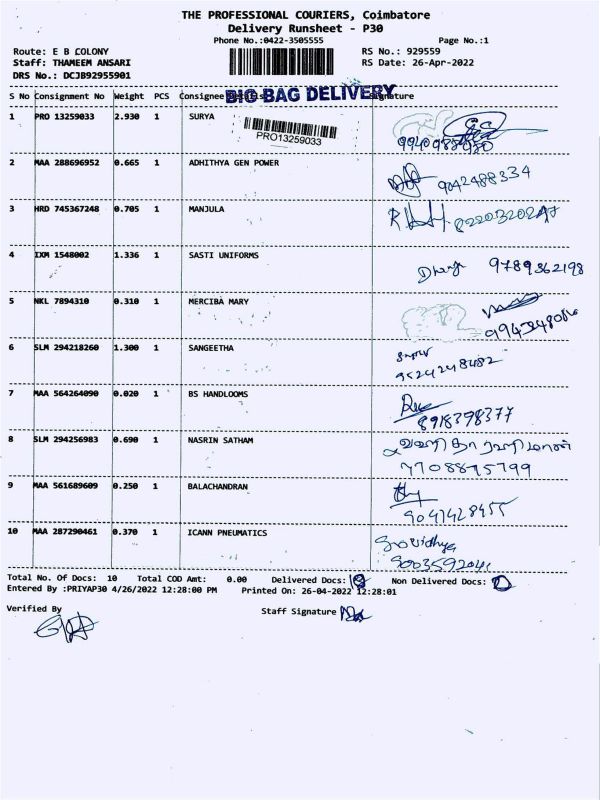 THE PROFESSIONAL COURIERS, Coimbatore
Delivery Runsheet - P30
Phone No.:0422-3505555 Page No.:1
Route: E B COLONY RS No.: 929559
Staff: THAMEEM ANSARI RS Date: 26-Apr-2022
DRS No.: DCJB92955901
S No Consignment No Weight PCS Consignee Details Signature
BIG BAG DELIVERY
1 PRO 13259033 2.930 1 SURYA
PRO13259033
2 MAA 288696952 0.665 1 ADHITHYA GEN POWER 9042488334
3 HRD 745367248 0.705 1 MANJULA
4 IXM 1548002 1.336 1 SASTI UNIFORMS 9789362198
5 NKL 7894310 0.310 1 MERCIBA MARY
6 SLM 294218260 1.300 1 SANGEETHA
9524248482
7 MAA 564264090 0.020 1 BS HANDLOOMS
8918398377
8 SLM 294256983 0.690 1 NASRIN SATHAM
7708895799
9 MAA 561689609 0.250 1 BALACHANDRAN
9041428455
10 MAA 287290461 0.370 1 ICANN PNEUMATICS
9003592041
Total No. Of Docs: 10 Total COD Amt: 0.00 Delivered Docs: 10 Non Delivered Docs: 0
Entered By :PRIYAP30 4/26/2022 12:28:00 PM Printed On: 26-04-2022 12:28:01
Verified By Staff Signature